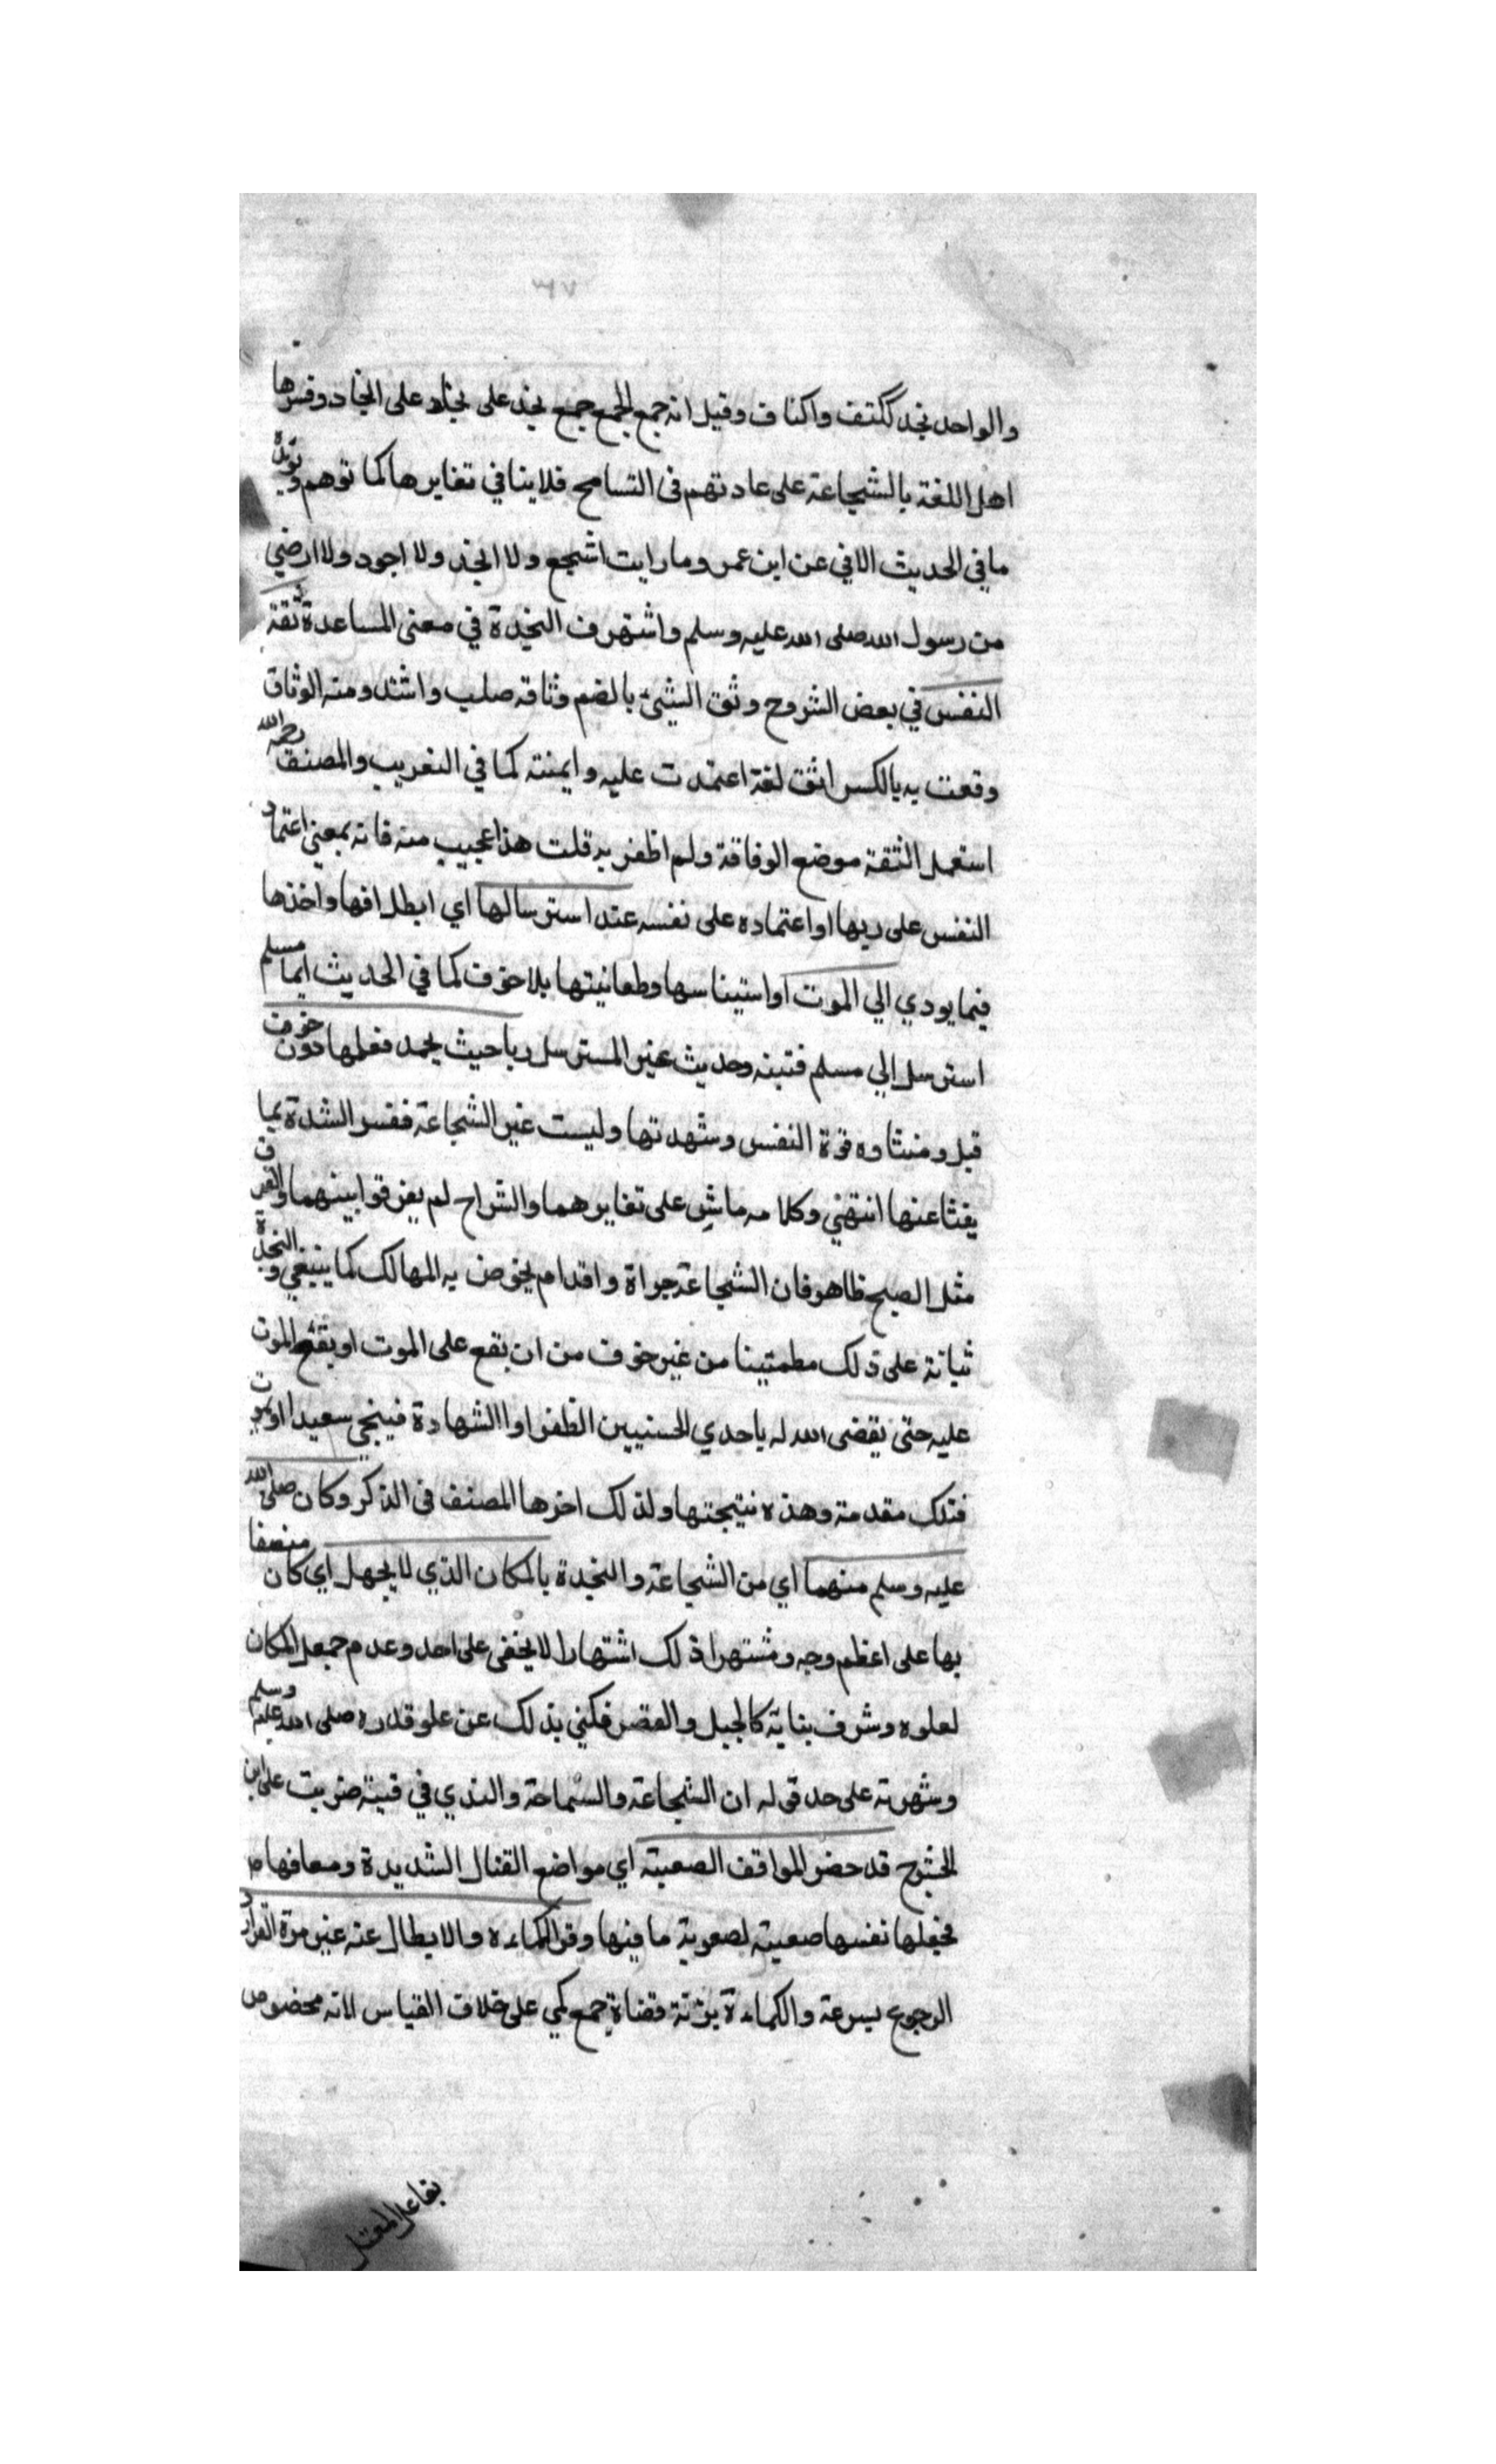 ٣٦٧
والواحد نجد ككتف واكتاف وقيل انه جمع الجمع جمع نجد على نجاد على انجاد وفسرها
اهل اللغة بالشجاعة على عادتهم في التسامح فلا ينافي تغايرها كما توهم ويؤيده
ما في الحديث الاتي عن ابن عمر وما رايت اشجع ولا انجد ولا اجود ولا ارضي
من رسول الله صلى الله عليه وسلم واشتهرف النجدة في معنى المساعدة ثقة
النفس في بعض الشروح وثق الشيئ بالضم وثاقه صلب واشتد ومنه الوثاق
وقعت به بالكسر اثق لغة اعتمدت عليه وايمنته كما في التعريب والمصنف رحمه الله
استعمل الثقة موضع الوفاقة ولم اظفر به قلت هذا عجيب منه فانه بمعنى اعتماد
النفس على ربها او اعتماده على نفسه عند استرسالها اي ابطلافها واخذها
فيما يودي الي الموت او استيناسها وطمانيتها بلا خوف كما في الحديث ايما مسلم
استرسل الي مسلم فتبنه وحديث غير المسترسل ربا حيث يحمد فعلمها دون خوف
قبل ومنشاوه قوة النفس وشهدتها وليست غير الشجاعة ففسر الشدة بما
يفثا عنها انتهي وكلامه ماش على تغايرهما والشراح لم يفرقوا بينهما والفرق
مثل الصبح ظاهر فان الشجاعة جراة واقدام يخوض به المهالك كما ينبغي والنجدة
ثباته على ذلك مطمئنينا من غير خوف من ان يقع على الموت او يقع الموت
عليه حتى يقضى الله له باحدي الحسنيين الظفر او الشهادة فينجي سعيدا او يموت
فتلك مقدمة وهذه نتيجتها ولذلك اخرها المصنف في الذكر وكان صلى الله
عليه وسلم منهما اي من الشجاعة والنجدة بالمكان الذي لا يجهل اي كان متصفا
بها على اعظم وجه ومشتهرا ذلك اشتهارا لا يخفى على احد وعدم جمعل المكان
لعلوه وشرف بنايه كالجبل والقصر فكني بذلك عن علو قدره صلى الله عليه وسلم
وشهرته على حد قوله ان الشجاعة والسماحة والندي في قبة ضربت على ابن
الحشرج قد حضر المواقف الصعبة اي مواضع القتال الشديدة ومصافها
فجعلها نفسها صعبة لصعوبة ما فيها وفر الكماءه والابطال عنه غير مرة الفرار
الرجوع بسرعة والكماءة بزنة قضاة جمع كمي على خلاف القياس لانه مخصوص
بفاعل المعتل